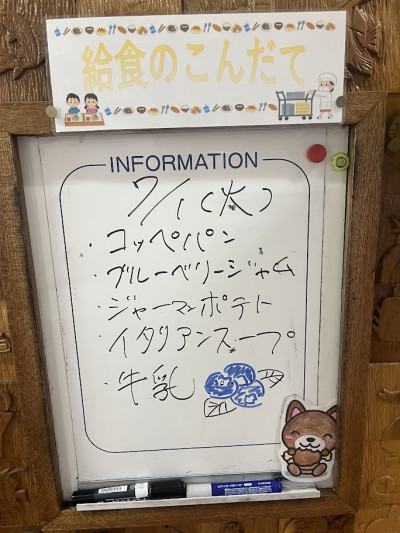 給食のこんだて
INFORMATION
7/1(火)
・コッペパン
・ブルーベリージャム
・ジャーマンポテト
・イタリアンスープ
・牛乳